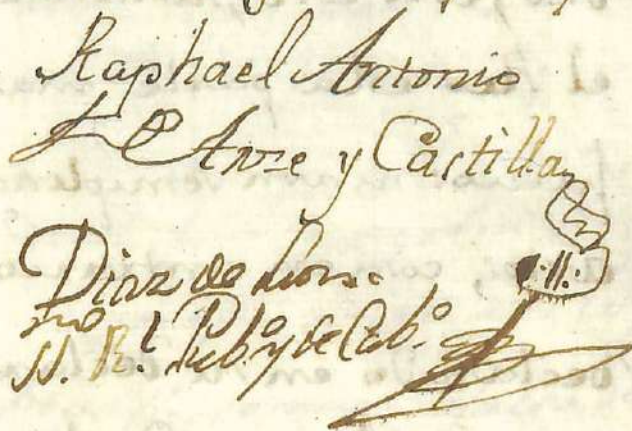 Raphael Antonio
de Arze y Castilla
Diaz de
SS.no R.l Pub.o y de Cab.o